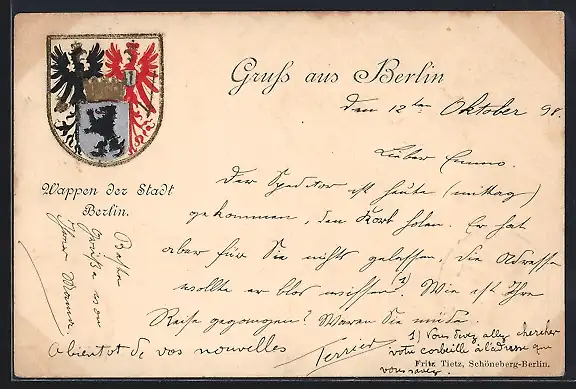 Gruß aus Berlin
den 12ten Oktober 98.
Wappen der Stadt
Berlin.
Lieber Emmo.
Der Spediteur ist heute (mittag)
gekommen, den Korb holen. Er hat
aber für Sie nichts gelassen, die Adresse
wollte er blos wissen 1). Wie ist Ihre
Reise gegangen? Waren Sie müde.
Beste
Grüße von
Ihrer Mama.
1) Vous devez aller chercher
votre corbeille à l'adresse que
vous savez.
A bientot de vos nouvelles
Terrier
Fritz Tietz, Schöneberg-Berlin.